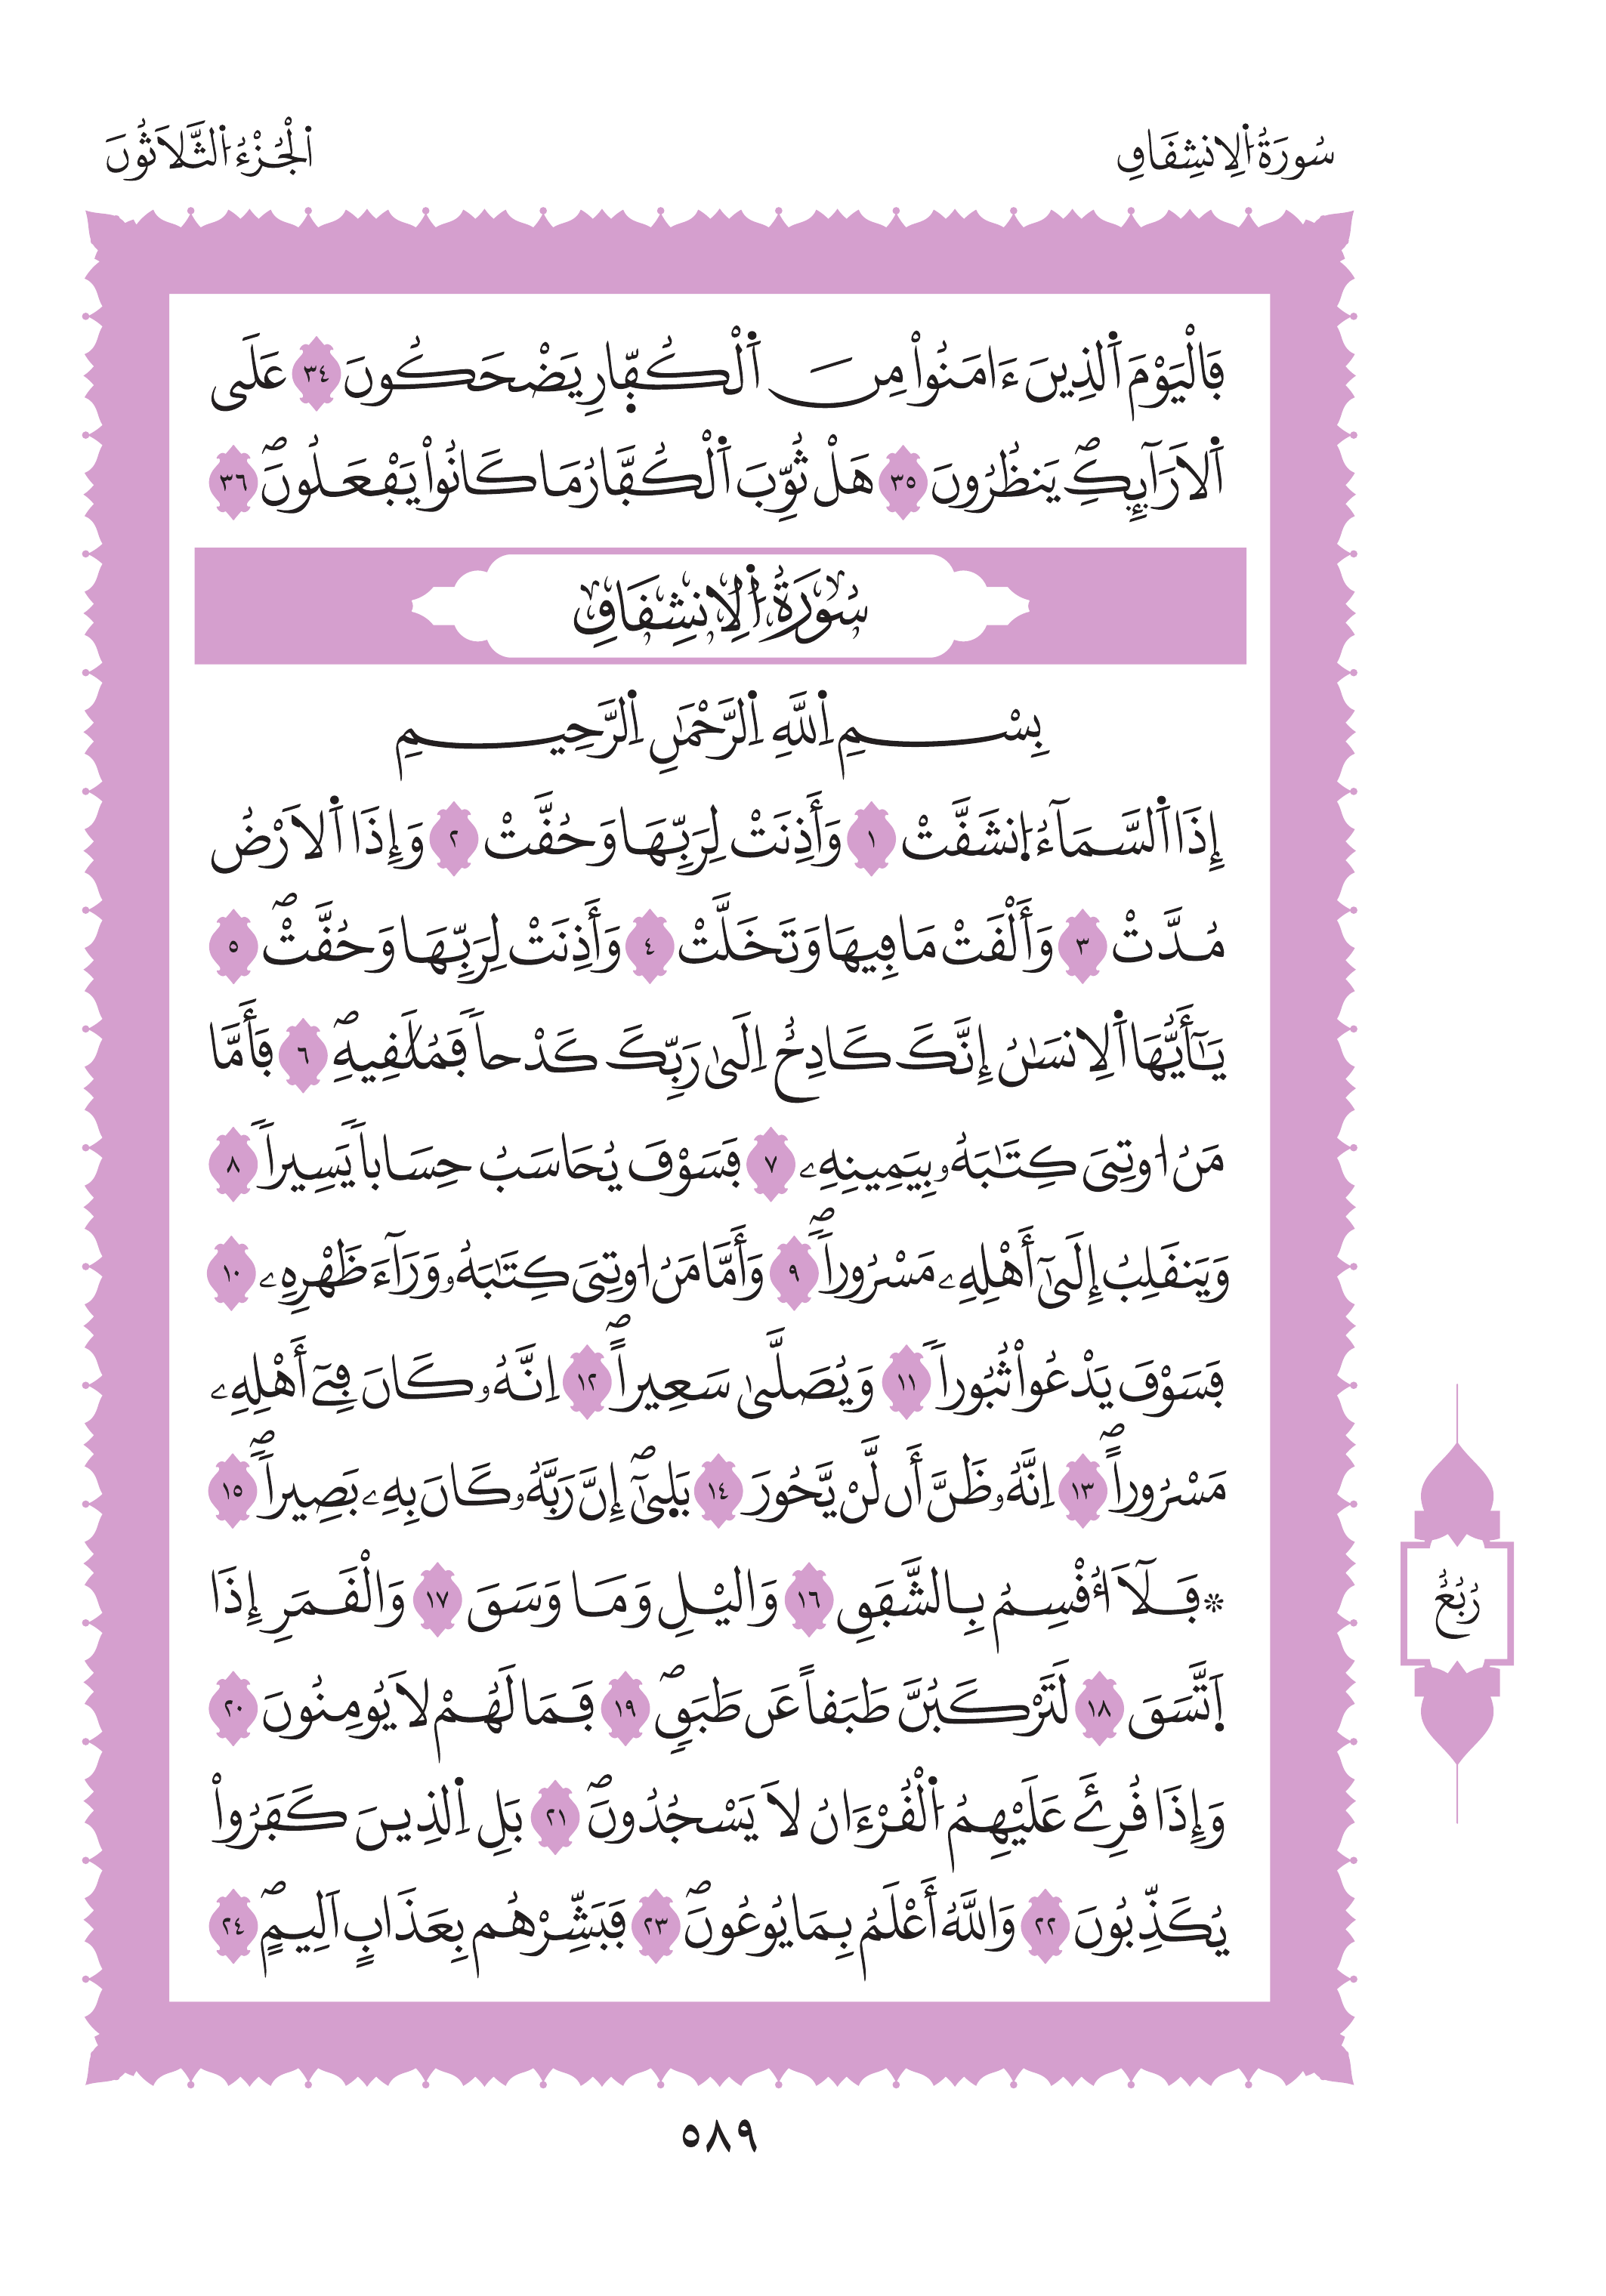 سُورَةُ اُ۬لِانشِقَاقِ
اُ۬لْجُزْءُ اُ۬لثَّلَاثُونَ
فَالْيَوْمَ اَ۬لذِينَ ءَامَنُواْ مِنَ اَ۬لْكُفّ۪ارِ يَضْحَكُونَ ٣٤ عَلَي
اَ۬لَارَآئِكِۖ يَنظُرُونَ ٣٥ هَلْ ثُوِّبَ اَ۬لْكُفَّارُ مَا كَانُواْ يَفْعَلُونَۖ ٣٦
سُورَةُ اُ۬لِانشِقَاقِ
بِسْمِ اِ۬للَّهِ اِ۬لرَّحْمَٰنِ اِ۬لرَّحِيمِ
إِذَا اَ۬لسَّمَآءُ اُ۪نشَقَّتْ ١ وَأَذِنَتْ لِرَبِّهَا وَحُقَّتْ ٢ وَإِذَا اَ۬لَارْضُ
مُدَّتْ ٣ وَأَلْقَتْ مَا فِيهَا وَتَخَلَّتْ ٤ وَأَذِنَتْ لِرَبِّهَا وَحُقَّتْۖ ٥
يَٰٓأَيُّهَا اَ۬لِانسَٰنُ إِنَّكَ كَادِحٌ اِلَىٰ رَبِّكَ كَدْحاٗ فَمُلَٰقِيهِۖ ٦ فَأَمَّا
مَنُ ا۟وتِيَ كِتَٰبَهُۥ بِيَمِينِهِۦ ٧ فَسَوْفَ يُحَاسَبُ حِسَاباٗ يَسِيراٗ ٨
وَيَنقَلِبُ إِلَىٰٓ أَهْلِهِۦ مَسْرُوراٗۖ ٩ وَأَمَّا مَنُ ا۟وتِيَ كِتَٰبَهُۥ وَرَآءَ ظَهْرِهِۦ ١٠
فَسَوْفَ يَدْعُواْ ثُبُوراٗ ١١ وَيُصَلَّىٰ سَعِيراًۖ ١٢ اِنَّهُۥ كَانَ فِےٓ أَهْلِهِۦ
مَسْرُوراًۖ ١٣ اِنَّهُۥ ظَنَّ أَن لَّنْ يَّحُورَ ١٤ بَل۪ىٰٓۖ إِنَّ رَبَّهُۥ كَانَ بِهِۦ بَصِيراٗۖ ١٥
۞فَلَآ أُقْسِمُ بِالشَّفَقِ ١٦ وَاليْلِ وَمَا وَسَقَ ١٧ وَالْقَمَرِ إِذَا
اَ۪تَّسَقَ ١٨ لَتَرْكَبُنَّ طَبَقاً عَن طَبَقٖۖ ١٩ فَمَا لَهُمْ لَا يُومِنُونَ ٢٠
وَإِذَا قُرِئَ عَلَيْهِمُ اُ۬لْقُرْءَانُ لَا يَسْجُدُونَۖ ٢١ بَلِ اِ۬لذِينَ كَفَرُواْ
يُكَذِّبُونَ ٢٢ وَاللَّهُ أَعْلَمُ بِمَا يُوعُونَۖ ٢٣ فَبَشِّرْهُم بِعَذَابٍ اَلِيمٍۖ ٢٤
رُبُعُ
٥٨٩